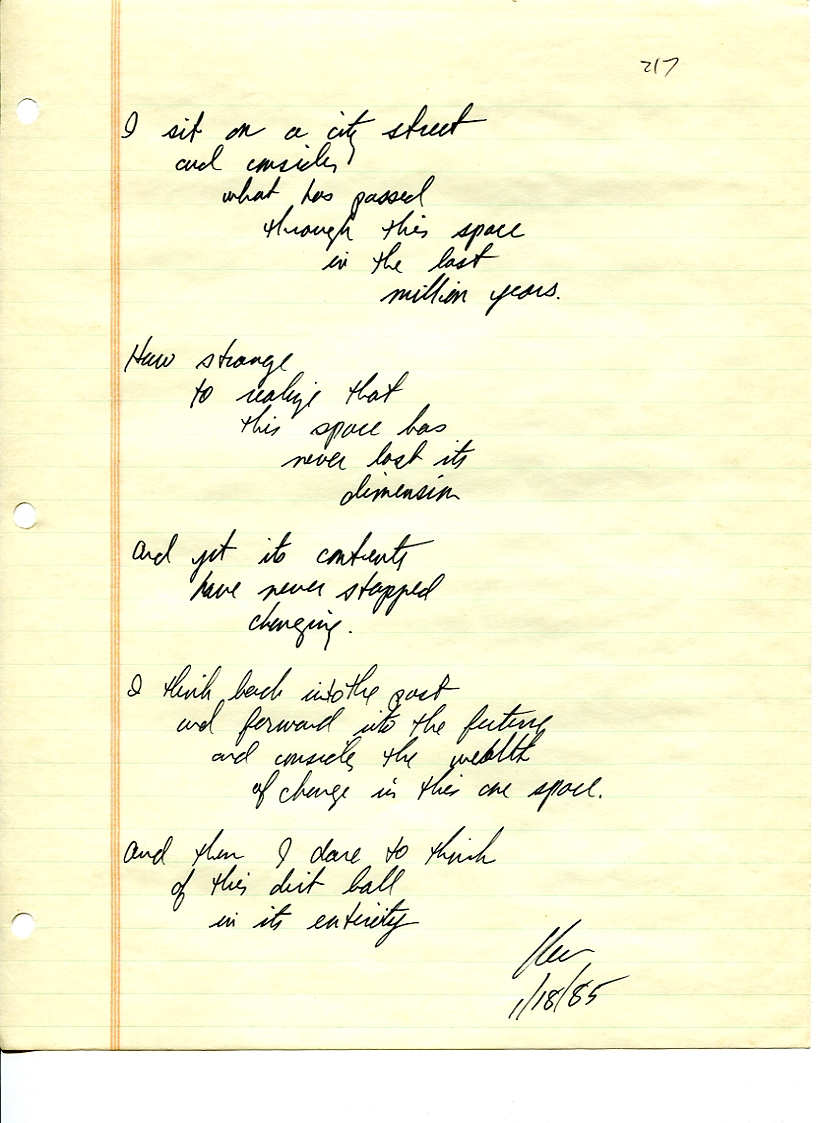 217
I sit on a city street
and consider
what has passed
through this space
in the last
million years.
How strange
to realize that
this space has
never lost its
dimension
And yet its contents
have never stopped
changing.
I think back into the past
and forward into the future
and consider the wealth
of change in this one space.
And then I dare to think
of this dirt ball
in its entirety
1/18/85